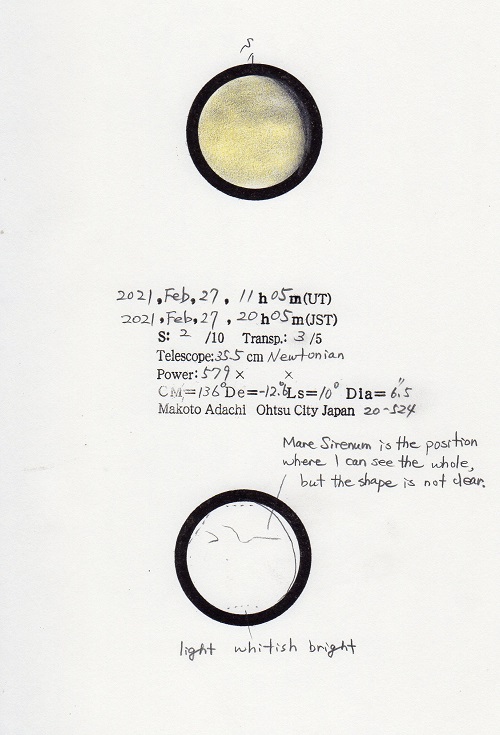 S
2021, Feb, 27, 11h05m(UT)
2021, Feb, 27, 20h05m(JST)
S: 2 /10 Transp.: 3 /5
Telescope: 35.5 cm Newtonian
Power: 579 × ×
CM=136° De=-12.6° Ls=10° Dia=6.5"
Makoto Adachi Ohtsu City Japan 20-524
Mare Sirenum is the position
where I can see the whole,
but the shape is not clear.
light whitish bright